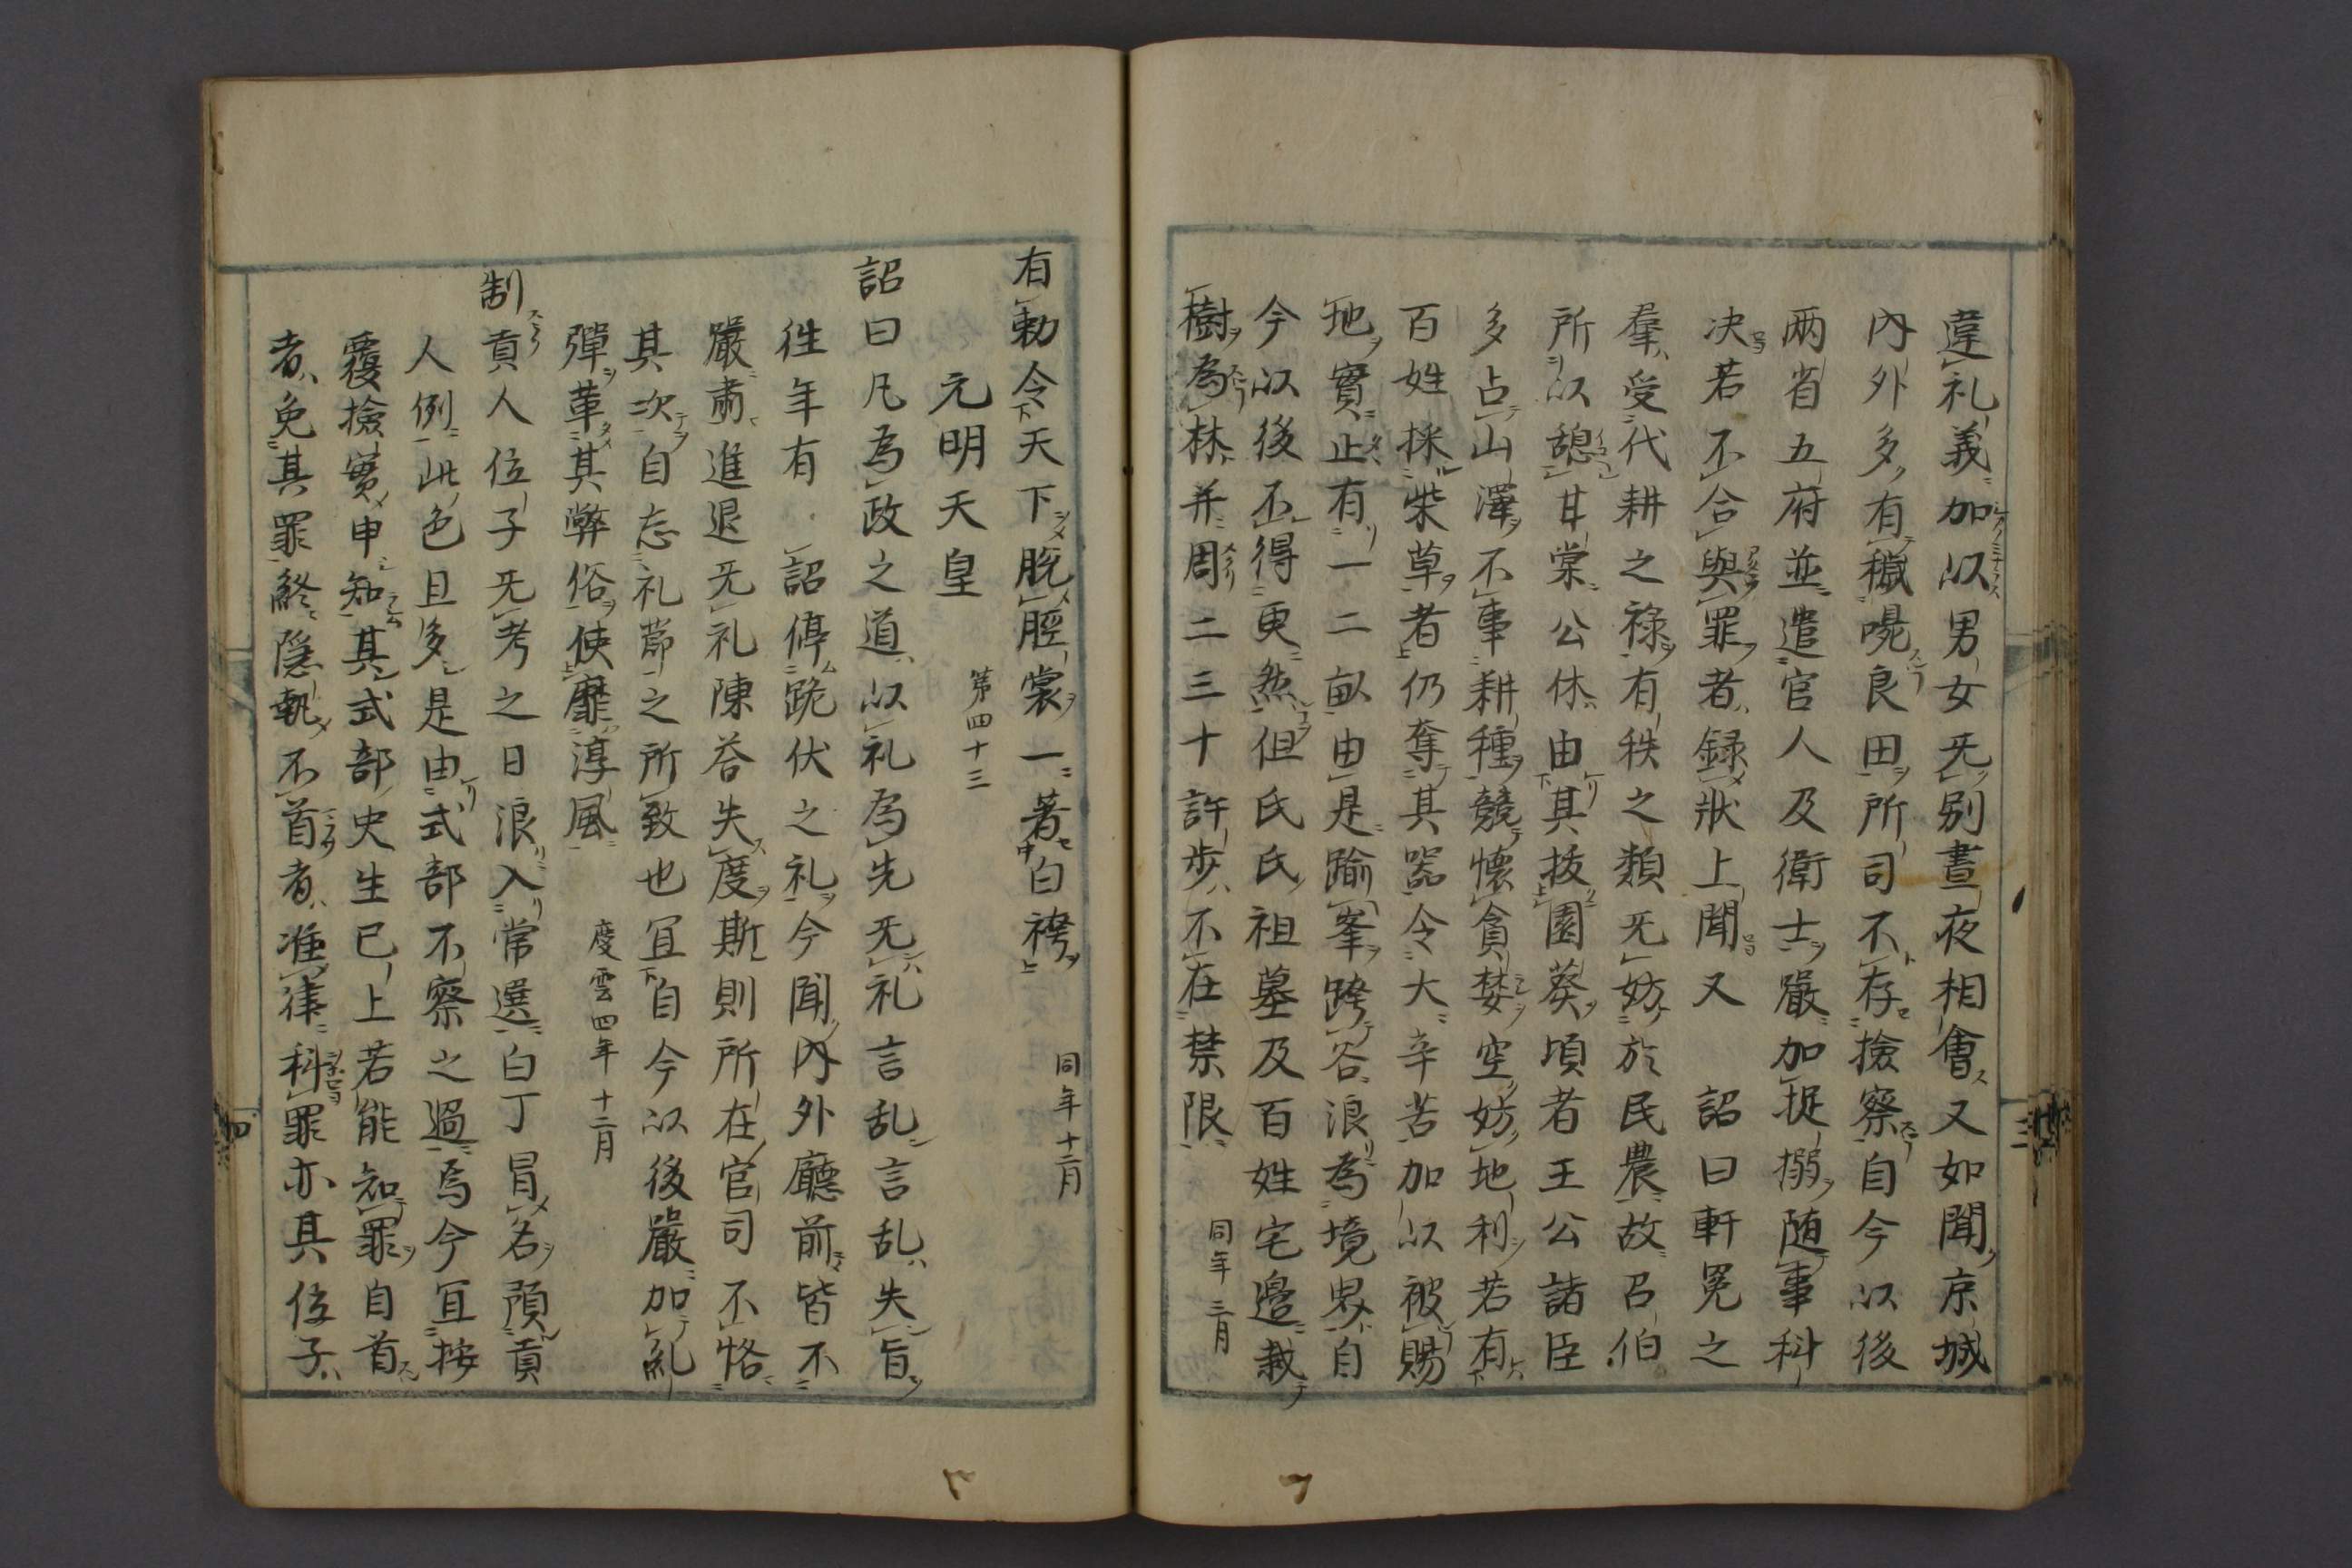 違礼義加以男女无別晝夜相會又如聞京城
內外多有穢嘊良田所司不存撿察自今以後
兩省五府並遣官人及衛士嚴加捉搦随事科
决若不合與罪者錄狀上聞又　詔曰軒冕之
羣受代耕之祿有秩之類无妨於民農故召伯
所以憩甘棠公休由其拔園葵頃者王公諸臣
多占山澤不事耕種競懷貪婪空妨地利若有
百姓採柴草者仍奪其器令大辛苦加以被賜
地實止有一二畝由是踰峯跨谷浪為境界自
今以後不得更然但氏氏祖墓及百姓宅邊栽
樹為林并周二三十許步不在禁限 同年三月
三
有勅令天下脫脛裳一著白袴 同年十二月
元明天皇 第四十三
詔曰凡為政之道以礼為先无礼言乱言乱失旨
往年有　詔停跪伏之礼今聞內外廳前皆不
嚴肅進退无礼陳荅失度斯則所在官司不恪
其次自忘礼節之所致也宜自今以後嚴加糺
彈革其弊俗使靡淳風 慶雲四年十二月
制貢人位子无考之日浪入常選白丁冒名預貢
人例此色且多是由式部不察之過焉今宜按
覆撿實申知其式部史生已上若能知罪自首
者免其罪終隱執不首者准律科罪亦其位子
四